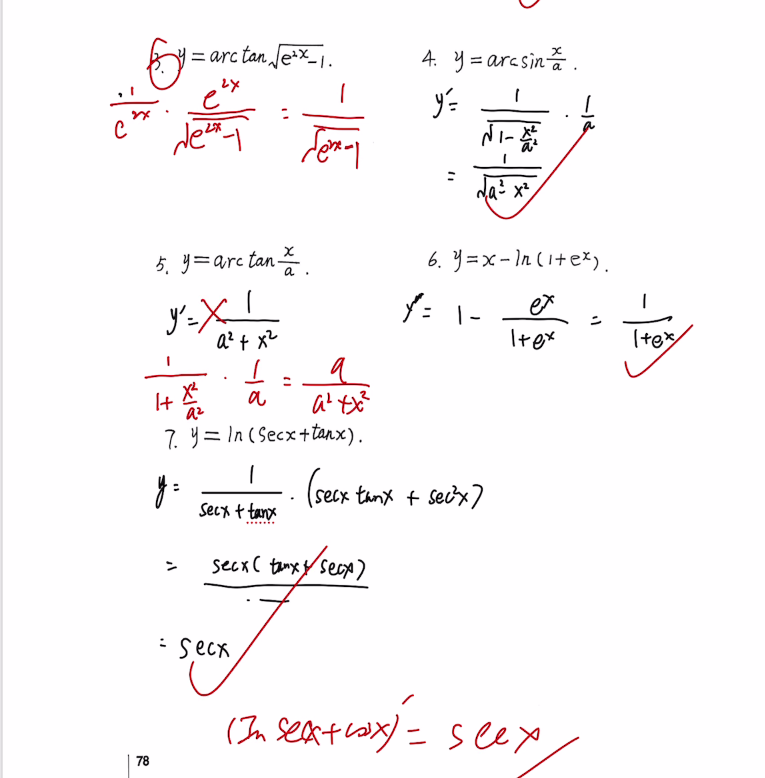 3. y = arc tan √(e^{2x}-1).
1/e^{2x} · e^{2x}/√(e^{2x}-1) = 1/√(e^{2x}-1)
4. y = arcsin x/a.
y' = 1/√(1-x²/a²) · 1/a
= 1/√(a²-x²)
5. y = arc tan x/a.
y' = 1/(a²+x²)
1/(1+x²/a²) · 1/a = a/(a²+x²)
6. y = x - ln(1+e^x).
y' = 1 - e^x/(1+e^x) = 1/(1+e^x)
7. y = ln(secx+tanx).
y = 1/(secx+tanx) · (secx tanx + sec²x)
= secx(tanx+secx)/
= secx
(ln secx+cosx)' = secx
78